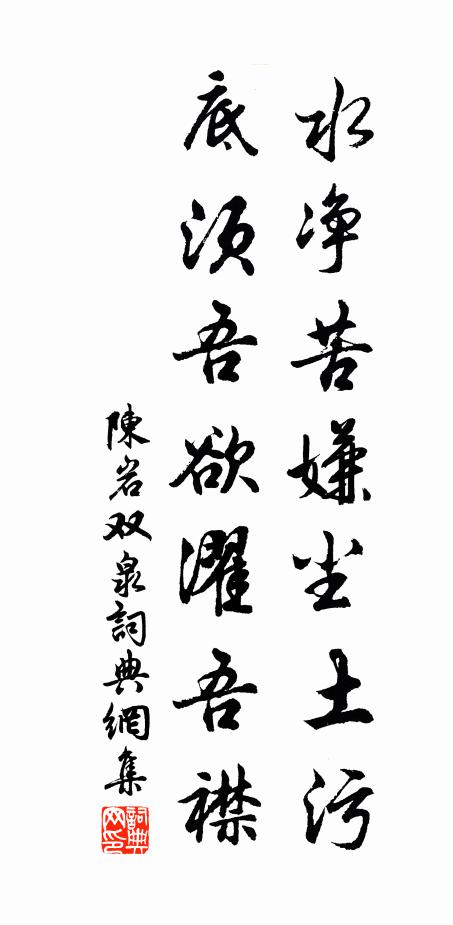 水净苦嫌尘土污
底须吾欲濯吾襟
陳岩双泉詞典網集
詞典网印